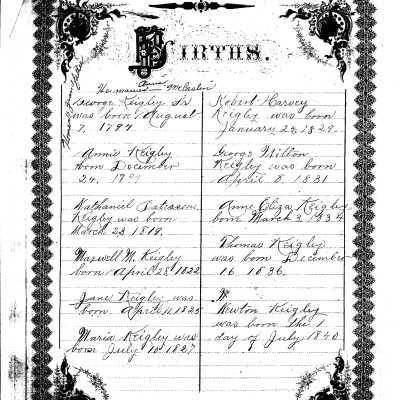 BIRTHS.
He married Ann McCaslin
George Keigley Sr
was born August
7, 1794
Annie Keigley
born December
24, 17
Nathaniel Patterson
Keigley was born
March 23 1819.
Maxwell M. Keigley
born April 28 1822
Jane Keigley was
born April 11 1825
Maria Keigley was
born July 10 1827
Robert Harvey
Keigley was born
January 29, 1829.
George Wilton
Keigley was born
April 8, 1831
Anne Eliza Keigley
born March 3, 1834
Thomas Keigley
was born December
16 1836.
W
Newton Keigley
was born the 1
day of July 1840